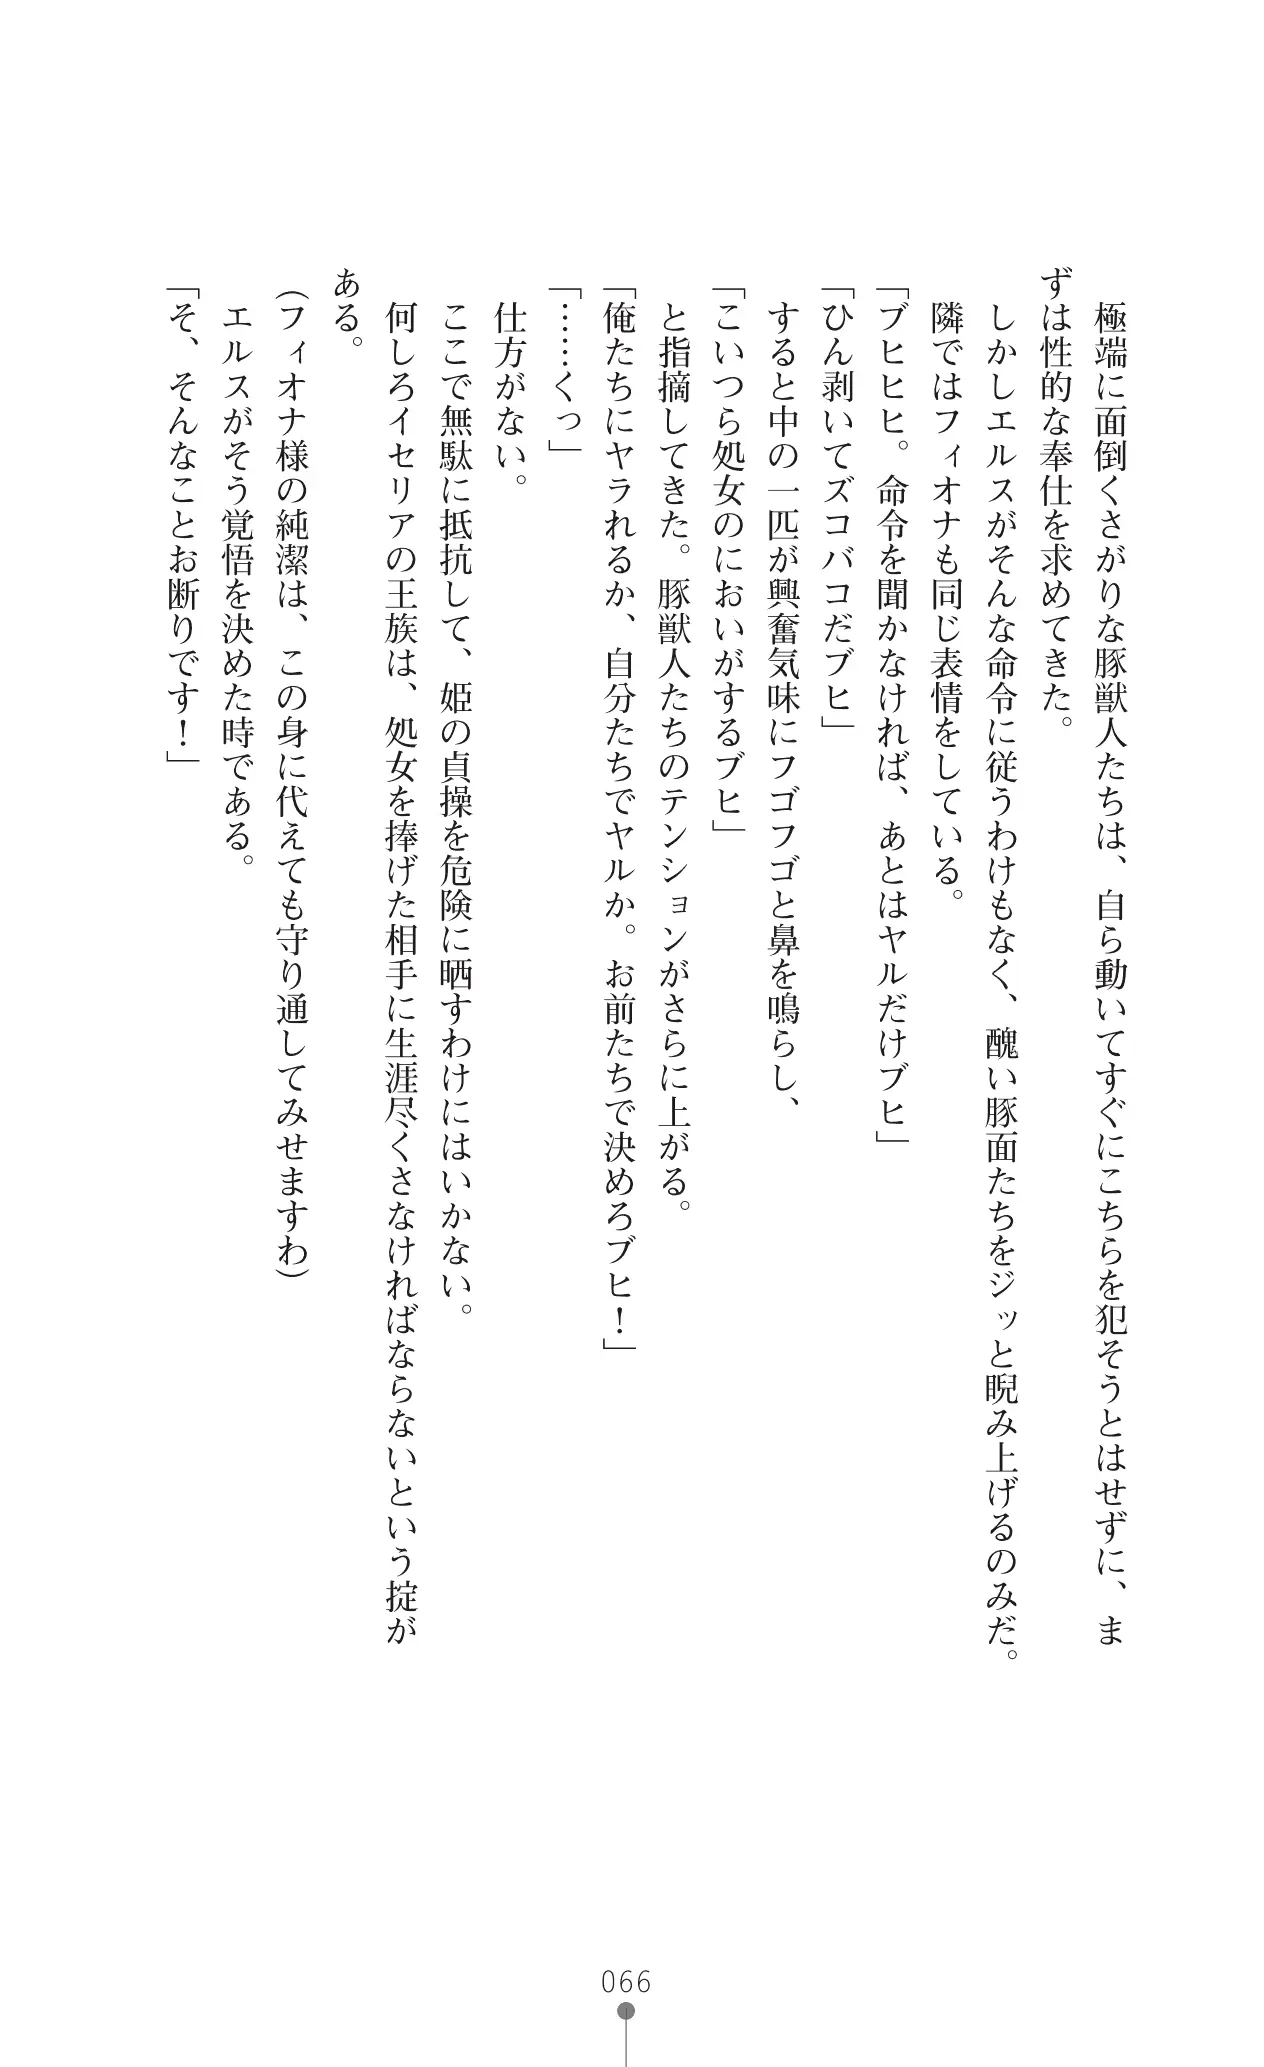 極端に面倒くさがりな豚獣人たちは、自ら動いてすぐにこちらを犯そうとはせずに、ま
ずは性的な奉仕を求めてきた。
　しかしエルスがそんな命令に従うわけもなく、醜い豚面たちをジッと睨み上げるのみだ。
　隣ではフィオナも同じ表情をしている。
「ブヒヒヒ。命令を聞かなければ、あとはヤルだけブヒ」
「ひん剥いてズコバコだブヒ」
　すると中の一匹が興奮気味にフゴフゴと鼻を鳴らし、
「こいつら処女のにおいがするブヒ」
　と指摘してきた。豚獣人たちのテンションがさらに上がる。
「俺たちにヤラれるか、自分たちでヤルか。お前たちで決めろブヒ！」
「……くっ」
　仕方がない。
　ここで無駄に抵抗して、姫の貞操を危険に晒すわけにはいかない。
　何しろイセリアの王族は、処女を捧げた相手に生涯尽くさなければならないという掟が
ある。
（フィオナ様の純潔は、この身に代えても守り通してみせますわ）
　エルスがそう覚悟を決めた時である。
「そ、そんなことお断りです！」
066